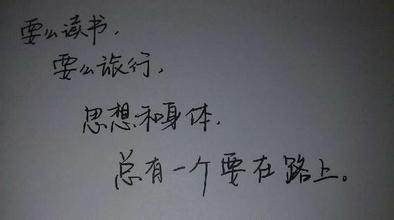 要么读书，
要么旅行，
思想和身体，
总有一个要在路上。